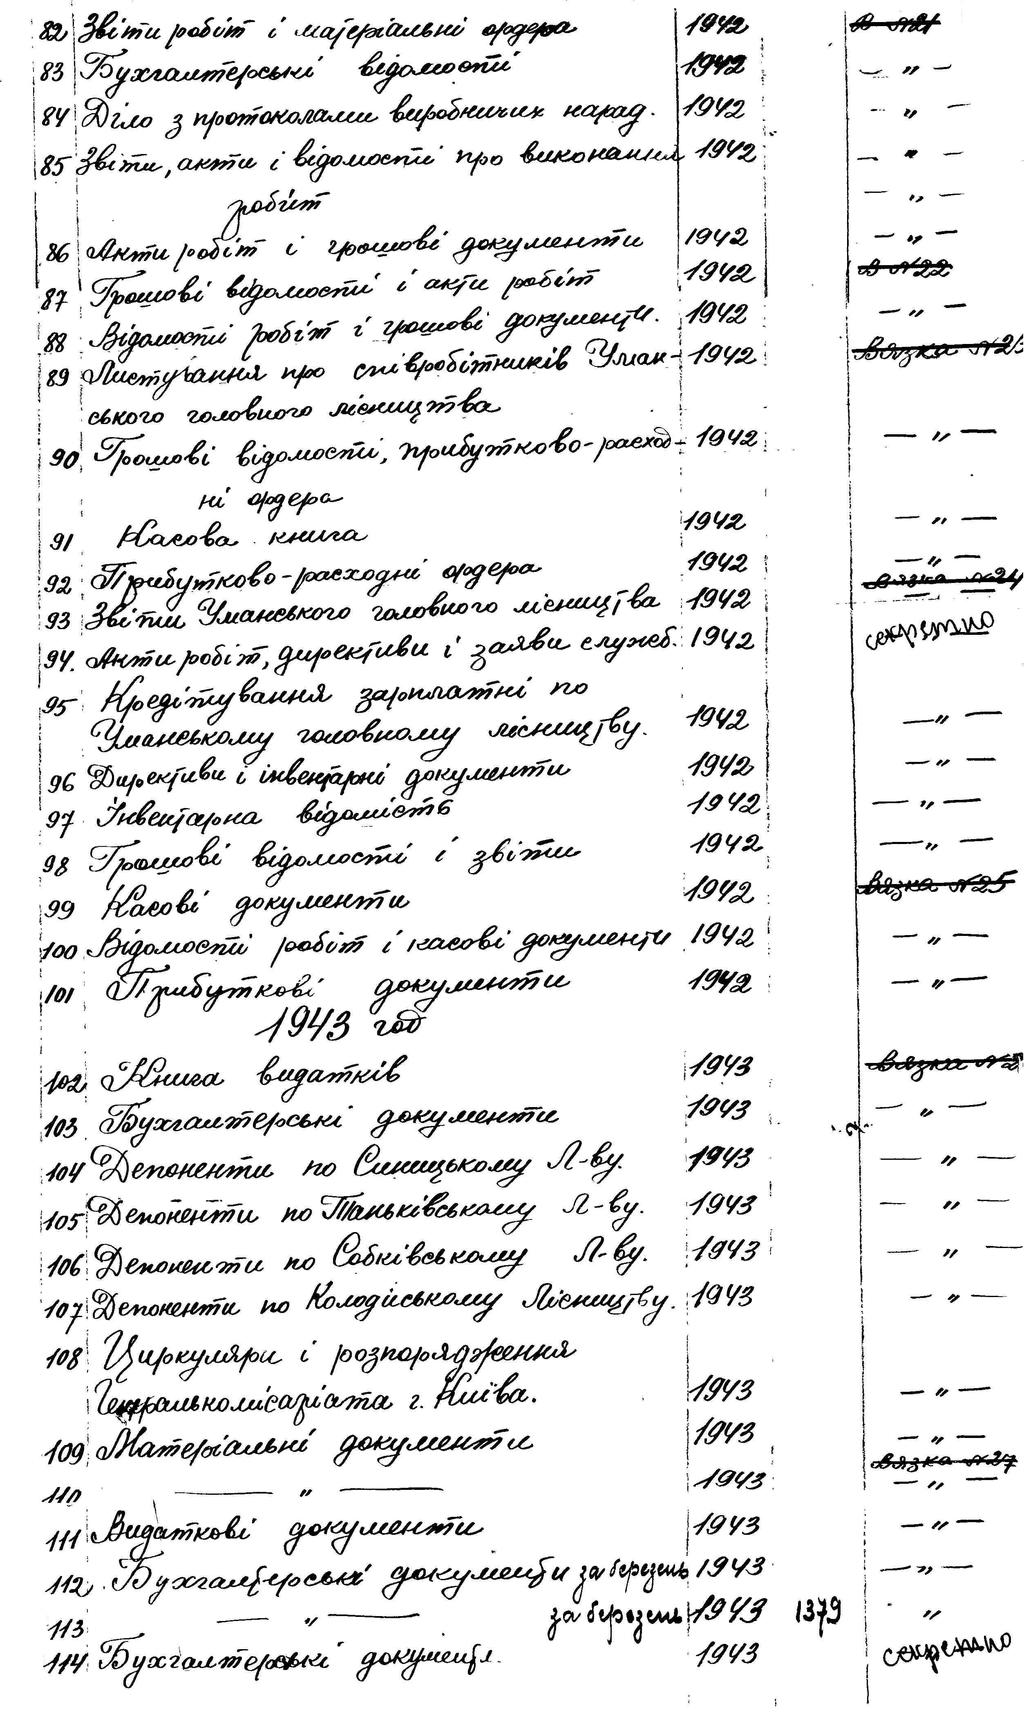 82 Звіти робіт і матеріальні ордера 1942 В №21
83 Бухгалтерські відомості 1942 — „ —
84 Діло з протоколами виробничих нарад. 1942 — „ —
85 Звіти, акти і відомості про виконання 1942 — „ —
робіт — „ —
86 Акти робіт і грошові документи 1942 — „ —
87 Грошові відомості і акти робіт 1942 В №22
88 Відомості робіт і грошові документи. 1942 — „ —
89 Листування про співробітників Уман- 1942 Вязка №23
ського головного лісництва
90 Грошові відомості, прибутково-расход- 1942 — „ —
ні ордера
91 Касова книга 1942 — „ —
92 Прибутково-расходні ордера 1942 — „ —
93 Звіти Уманського головного лісництва 1942 Вязка №24
94. Акти робіт, директиви і заяви служб. 1942 секретно
95 Кредітування зарплатні по
Уманському головному лісництву. 1942 — „ —
96 Директиви і інвентарні документи 1942 — „ —
97 Інвентарна відомість 1942 — „ —
98 Грошові відомості і звіти 1942 — „ —
99 Касові документи 1942 Вязка №25
100 Відомості робіт і касові документи 1942 — „ —
101 Прибуткові документи 1942 — „ —
1943 год
102 Книга видатків 1943 Вязка №2
103 Бухгалтерські документи 1943 — „ —
104 Депоненти по Синицькому Л-ву. 1943 — „ —
105 Депоненти по Таньківському Л-ву. 1943 — „ —
106 Депоненти по Собківському Л-ву. 1943 — „ —
107 Депоненти по Колодиському Лісництву. 1943 — „ —
108 Циркуляри і розпорядження
Генералькомісаріата г. Київа. 1943 — „ —
109 Матеріальні документи 1943 — „ —
Вязка №27
110 — „ — 1943 — „ —
111 Видаткові документи 1943 — „ —
112 Бухгалтерські документи за березень 1943 — „ —
113 — „ — за березень 1943 1379 „
114 Бухгалтерські документи. 1943 секретно